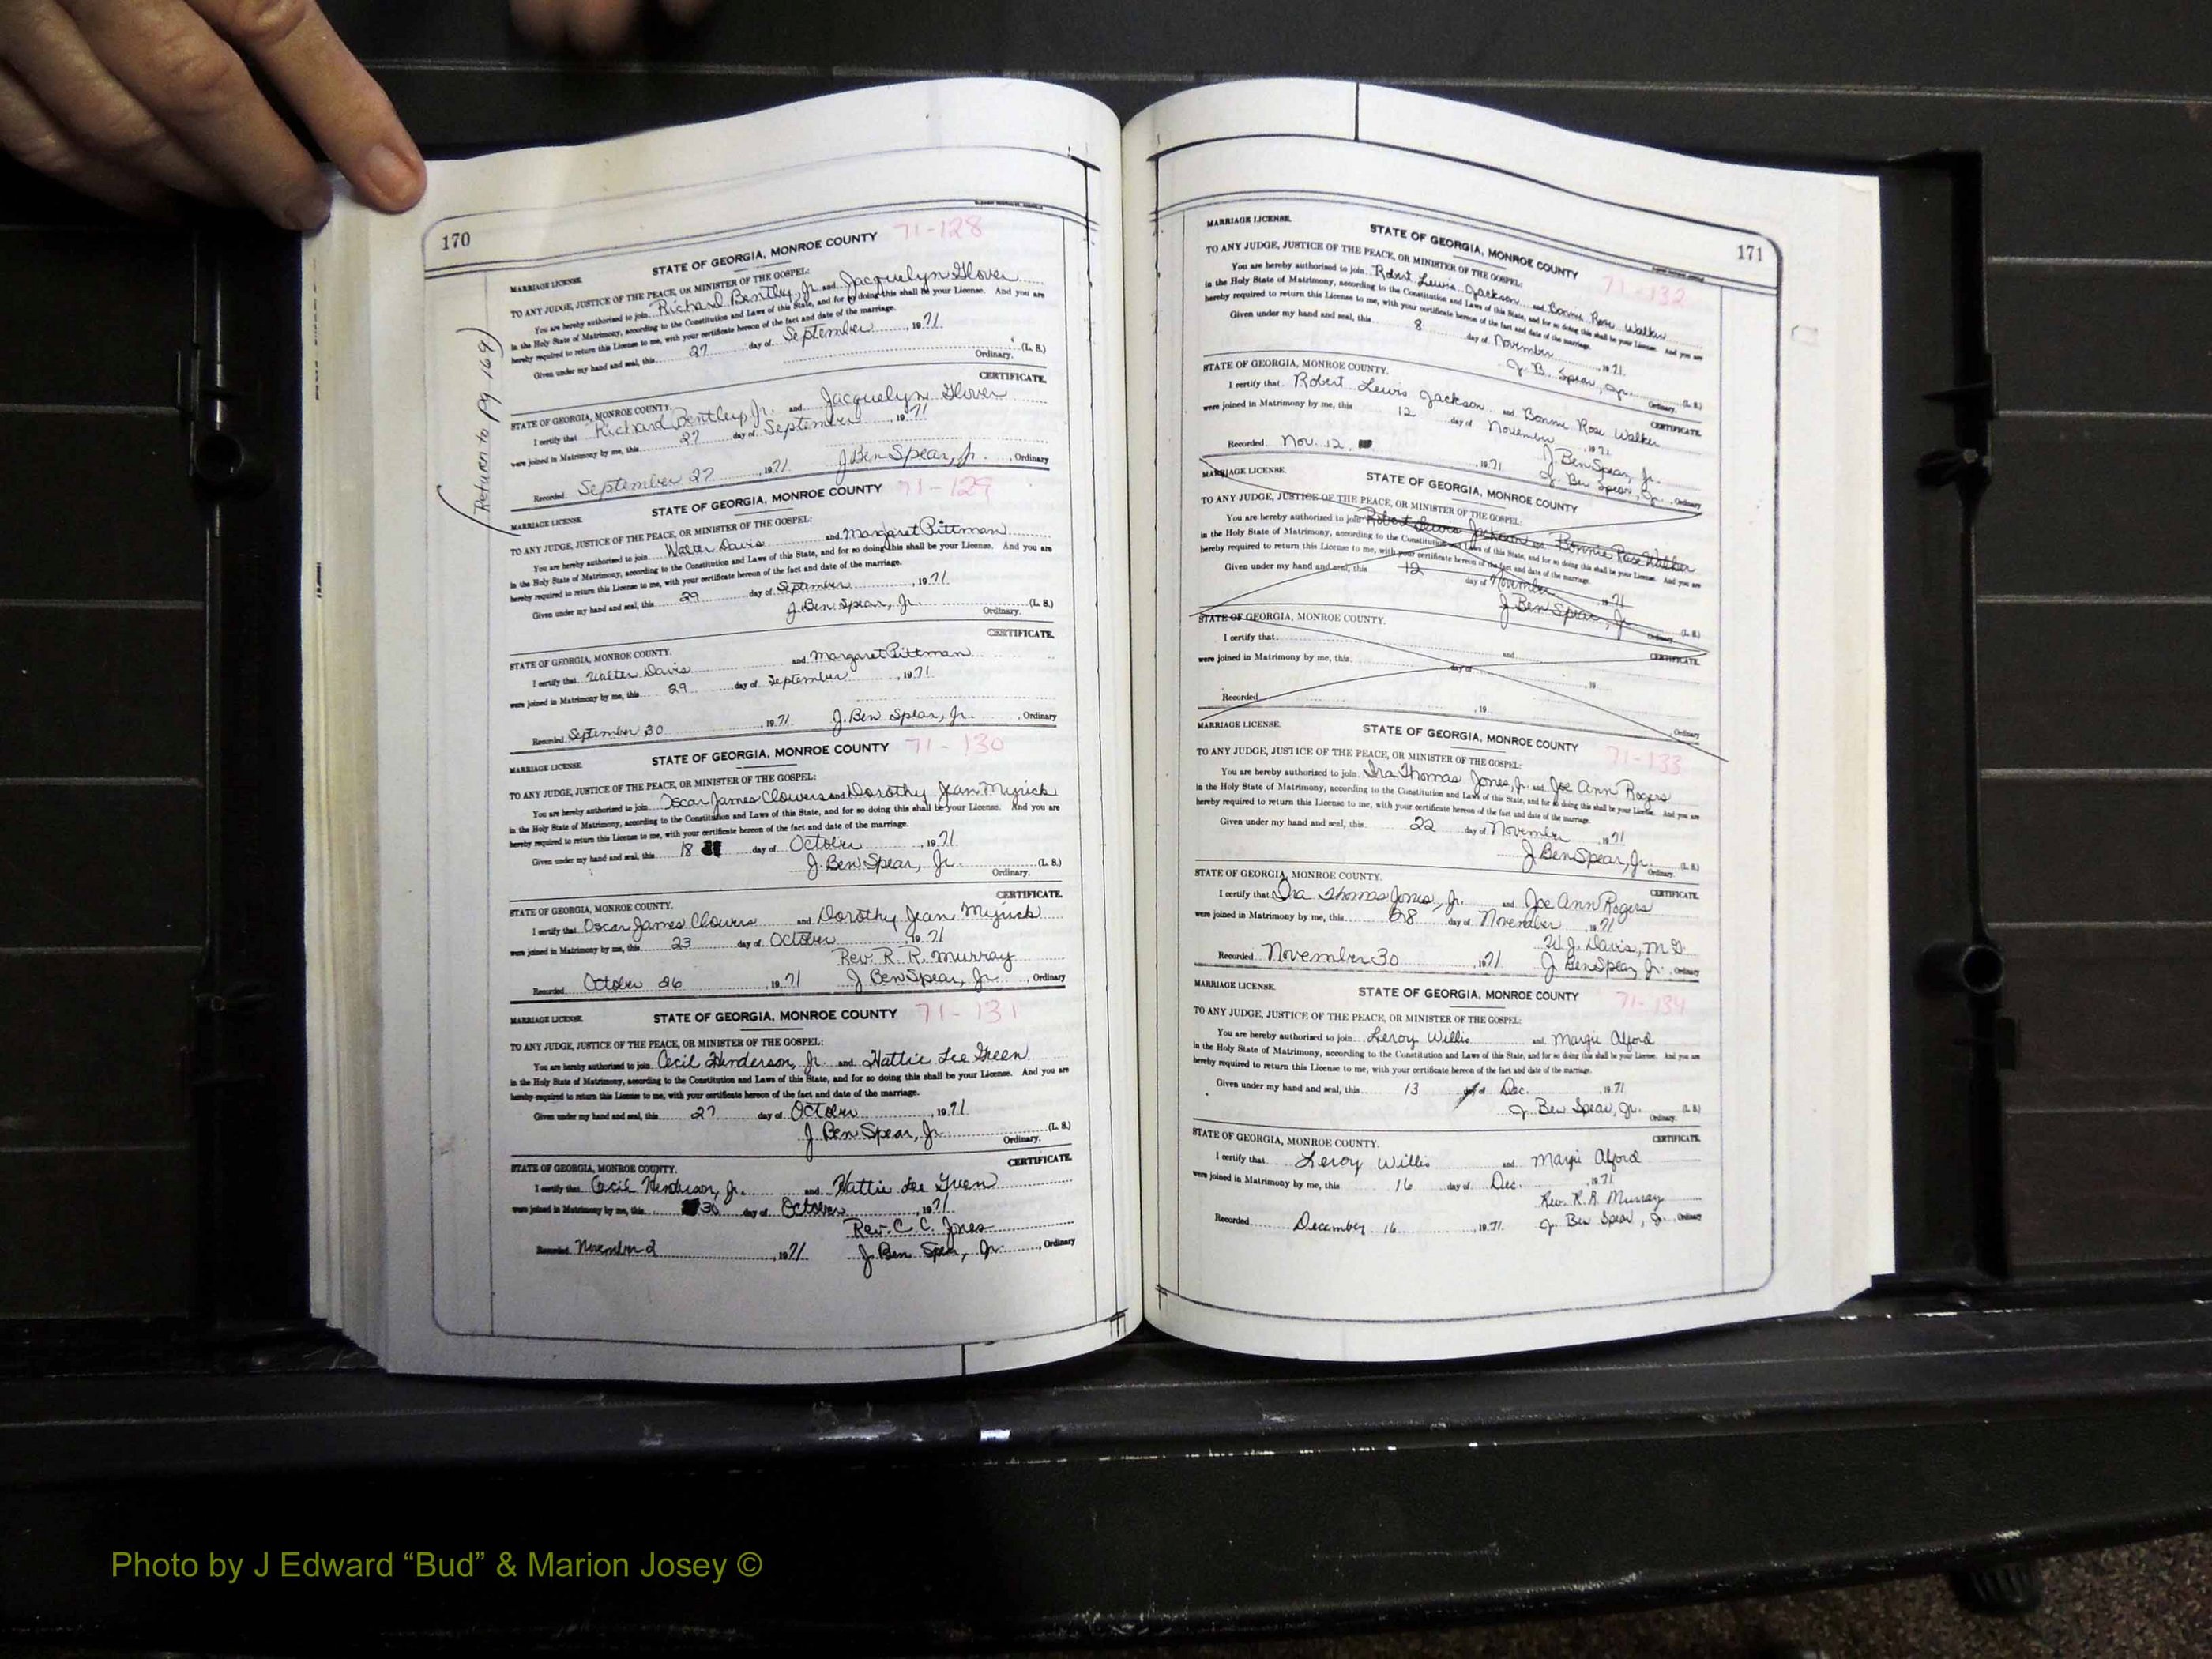 170
STATE OF GEORGIA, MONROE COUNTY 71-128
MARRIAGE LICENSE.
TO ANY JUDGE, JUSTICE OF THE PEACE, OR MINISTER OF THE GOSPEL:
You are hereby authorized to join Richard Bentley, Jr. and Jacquelyn Glover
in the Holy State of Matrimony, according to the Constitution and Laws of this State, and for so doing this shall be your License. And you are
hereby required to return this License to me, with your certificate hereon of the fact and date of the marriage.
Given under my hand and seal, this 27 day of September, 1971
(L. S.)
Ordinary.
CERTIFICATE.
STATE OF GEORGIA, MONROE COUNTY.
I certify that Richard Bentley, Jr. and Jacquelyn Glover
were joined in Matrimony by me, this 27 day of September, 1971
Recorded September 27, 1971 J Ben Spear, Jr., Ordinary
(Return to Pg 169)
STATE OF GEORGIA, MONROE COUNTY 71-129
MARRIAGE LICENSE
TO ANY JUDGE, JUSTICE OF THE PEACE, OR MINISTER OF THE GOSPEL:
You are hereby authorized to join Walter Davis and Margaret Pittman
in the Holy State of Matrimony, according to the Constitution and Laws of this State, and for so doing this shall be your License. And you are
hereby required to return this License to me, with your certificate hereon of the fact and date of the marriage.
Given under my hand and seal, this 29 day of September, 1971
J. Ben Spear, Jr. (L. S.)
Ordinary.
CERTIFICATE.
STATE OF GEORGIA, MONROE COUNTY.
I certify that Walter Davis and Margaret Pittman
were joined in Matrimony by me, this 29 day of September, 1971
Recorded September 30, 1971 J. Ben Spear, Jr., Ordinary
STATE OF GEORGIA, MONROE COUNTY 71-130
MARRIAGE LICENSE.
TO ANY JUDGE, JUSTICE OF THE PEACE, OR MINISTER OF THE GOSPEL:
You are hereby authorized to join Oscar James Clowers and Dorothy Jean Myrick
in the Holy State of Matrimony, according to the Constitution and Laws of this State, and for so doing this shall be your License. And you are
hereby required to return this License to me, with your certificate hereon of the fact and date of the marriage.
Given under my hand and seal, this 18 day of October, 1971
J. Ben Spear, Jr. (L. S.)
Ordinary.
CERTIFICATE.
STATE OF GEORGIA, MONROE COUNTY.
I certify that Oscar James Clowers and Dorothy Jean Myrick
were joined in Matrimony by me, this 23 day of October, 1971
Rev. R. R. Murray
Recorded October 26, 1971 J Ben Spear, Jr., Ordinary
MARRIAGE LICENSE. STATE OF GEORGIA, MONROE COUNTY 71-131
TO ANY JUDGE, JUSTICE OF THE PEACE, OR MINISTER OF THE GOSPEL:
You are hereby authorized to join Cecil Henderson, Jr. and Hattie Lee Green
in the Holy State of Matrimony, according to the Constitution and Laws of this State, and for so doing this shall be your License. And you are
hereby required to return this License to me, with your certificate hereon of the fact and date of the marriage.
Given under my hand and seal, this 27 day of October, 1971
J Ben Spear, Jr. (L. S.)
Ordinary.
CERTIFICATE.
STATE OF GEORGIA, MONROE COUNTY.
I certify that Cecil Henderson, Jr. and Hattie Lee Green
were joined in Matrimony by me, this 30 day of October, 1971
Rev. C. C. Jones
Recorded November 2, 1971 J. Ben Spear, Jr., Ordinary
171
MARRIAGE LICENSE. STATE OF GEORGIA, MONROE COUNTY 71-132
TO ANY JUDGE, JUSTICE OF THE PEACE, OR MINISTER OF THE GOSPEL:
You are hereby authorized to join Robert Lewis Jackson and Bonnie Rose Walker
in the Holy State of Matrimony, according to the Constitution and Laws of this State, and for so doing this shall be your License. And you are
hereby required to return this License to me, with your certificate hereon of the fact and date of the marriage.
Given under my hand and seal, this 8 day of November, 1971.
J. B. Spear, Jr. (L. S.)
Ordinary.
STATE OF GEORGIA, MONROE COUNTY. CERTIFICATE.
I certify that Robert Lewis Jackson and Bonnie Rose Walker
were joined in Matrimony by me, this 12 day of November, 1971
J Ben Spear, Jr.
Recorded Nov. 12, 1971 J. Ben Spear, Jr., Ordinary
MARRIAGE LICENSE. STATE OF GEORGIA, MONROE COUNTY
TO ANY JUDGE, JUSTICE OF THE PEACE, OR MINISTER OF THE GOSPEL:
You are hereby authorized to join Robert Lewis Jackson and Bonnie Rose Walker
in the Holy State of Matrimony, according to the Constitution and Laws of this State, and for so doing this shall be your License. And you are
hereby required to return this License to me, with your certificate hereon of the fact and date of the marriage.
Given under my hand and seal, this 12 day of November 1971
J Ben Spear, Jr. (L. S.)
Ordinary.
STATE OF GEORGIA, MONROE COUNTY. CERTIFICATE.
I certify that and
were joined in Matrimony by me, this day of , 19
Recorded , 19 Ordinary
MARRIAGE LICENSE. STATE OF GEORGIA, MONROE COUNTY 71-133
TO ANY JUDGE, JUSTICE OF THE PEACE, OR MINISTER OF THE GOSPEL:
You are hereby authorized to join Ira Thomas Jones, Jr. and Joe Ann Rogers
in the Holy State of Matrimony, according to the Constitution and Laws of this State, and for so doing this shall be your License. And you are
hereby required to return this License to me, with your certificate hereon of the fact and date of the marriage.
Given under my hand and seal, this 22 day of November, 1971
J Ben Spear, Jr. (L. S.)
Ordinary.
STATE OF GEORGIA, MONROE COUNTY. CERTIFICATE.
I certify that Ira Thomas Jones, Jr. and Joe Ann Rogers
were joined in Matrimony by me, this 28 day of November, 1971
W. J. Davis, M. G.
Recorded November 30, 1971 J Ben Spear, Jr., Ordinary
MARRIAGE LICENSE. STATE OF GEORGIA, MONROE COUNTY 71-134
TO ANY JUDGE, JUSTICE OF THE PEACE, OR MINISTER OF THE GOSPEL:
You are hereby authorized to join Leroy Willis and Margie Alford
in the Holy State of Matrimony, according to the Constitution and Laws of this State, and for so doing this shall be your License. And you are
hereby required to return this License to me, with your certificate hereon of the fact and date of the marriage.
Given under my hand and seal, this 13 day of Dec., 1971
J. Ben Spear, Jr. (L. S.)
Ordinary.
STATE OF GEORGIA, MONROE COUNTY. CERTIFICATE.
I certify that Leroy Willis and Margie Alford
were joined in Matrimony by me, this 16 day of Dec. , 1971
Rev. R. R. Murray
Recorded December 16, 1971. J. Ben Spear, Jr., Ordinary
Photo by J Edward “Bud” & Marion Josey ©